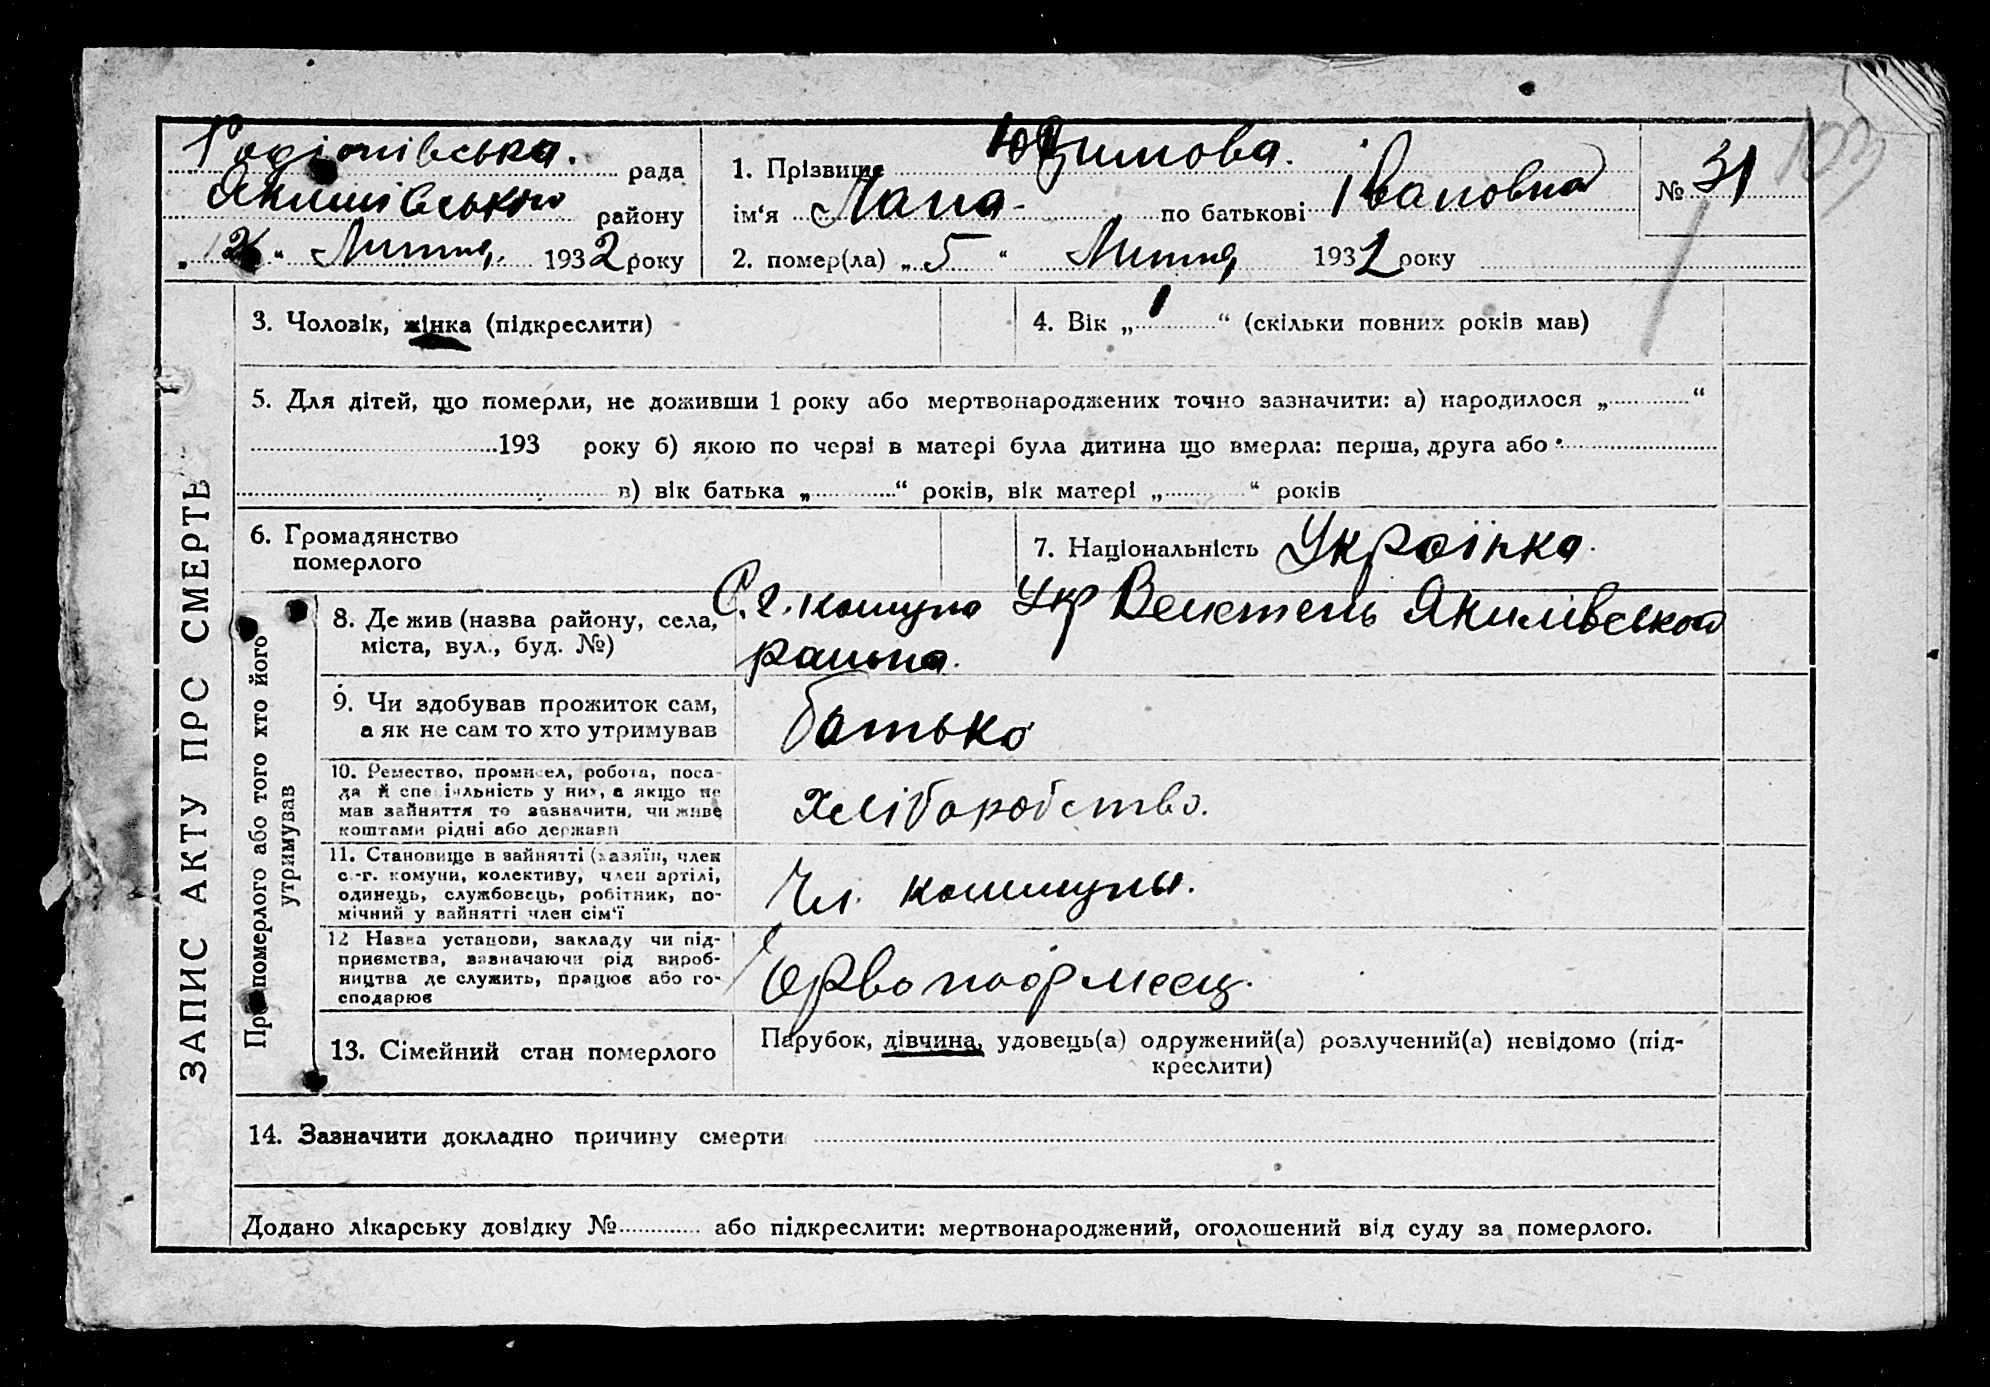 Родіонівська. рада
Якимівського району
„ 12 “ Липня, 1932 року
1. Прізвище Юхимова.
ім'я по батькові Івановна
№ 31
103
2. помер(ла) „ 5 “ Липня, 1932 року
ЗАПИС АКТУ ПРО СМЕРТЬ
3. Чоловік, жінка (підкреслити)
4. Вік „ 1 “ (скільки повних років мав)
5. Для дітей, що померли, не доживши 1 року або мертвонароджених точно зазначити: а) народилося „ “
193 року б) якою по черзі в матері була дитина що вмерла: перша, друга або
в) вік батька „ “ років, вік матері „ “ років
6. Громадянство
померлого
7. Національність Українка.
Про померлого або того хто його
утримував
8. Де жив (назва району, села,
міста, вул., буд. №)
С. г. комуна Укр Якимівського
района.
9. Чи здобував прожиток сам,
а як не сам то хто утримував
батько
10. Ремество, промисел, робота, поса-
да й спеціяльність у них, а якщо не
мав зайняття то зазначити, чи живе
коштами рідні або держави
Хліборобство.
11. Становище в зайнятті (хазяїн, член
с.-г. комуни, колективу, член артілі,
одинець, службовець, робітник, по-
мічний у зайнятті член сім'ї
Чл. коммуны.
12 Назва установи, закладу чи під-
приємства, зазначаючи рід вироб-
ництва де служить, працює або го-
сподарює
13. Сімейний стан померлого
Парубок, дівчина, удовець(а) одружений(а) розлучений(а) невідомо (під-
креслити)
14. Зазначити докладно причину смерти
Додано лікарську довідку № або підкреслити: мертвонароджений, оголошений від суду за померлого.